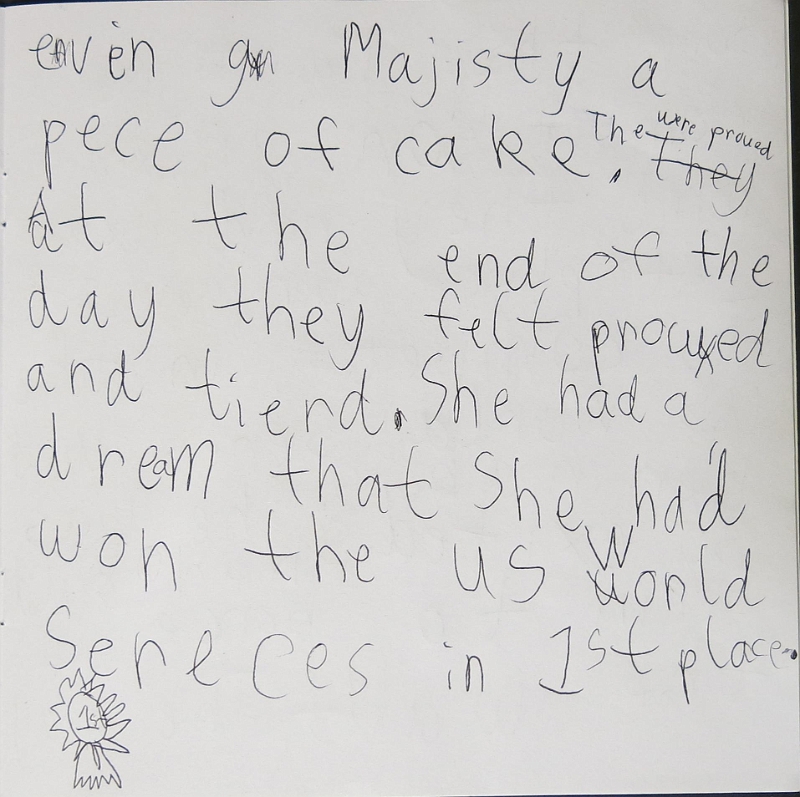 even Majisty a
pece of cake. The were proued
At the end of the
day they felt proued
and tierd. She had a
dream that She had
won the us World
Sereces in 1st place.
1st